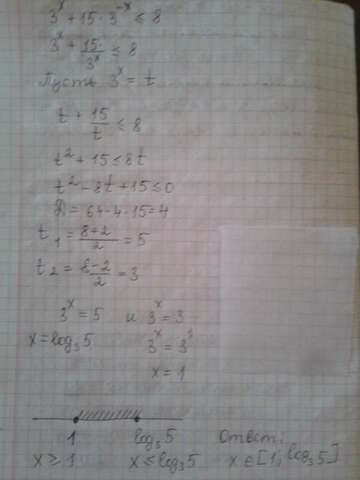 3^x + 15 · 3^-x ≤ 8
3^x + 15/3^x ≤ 8
Пусть 3^x = t
t + 15/t ≤ 8
t² + 15 ≤ 8t
t² - 8t + 15 ≤ 0
D = 64 - 4 · 15 = 4
t₁ = (8+2)/2 = 5
t₂ = (8-2)/2 = 3
3^x = 5 и 3^x = 3
x = log₃5 3^x = 3¹
x = 1
1 log₃5 Ответ:
x ≥ 1 x ≤ log₃5 x ∈ [1; log₃5]